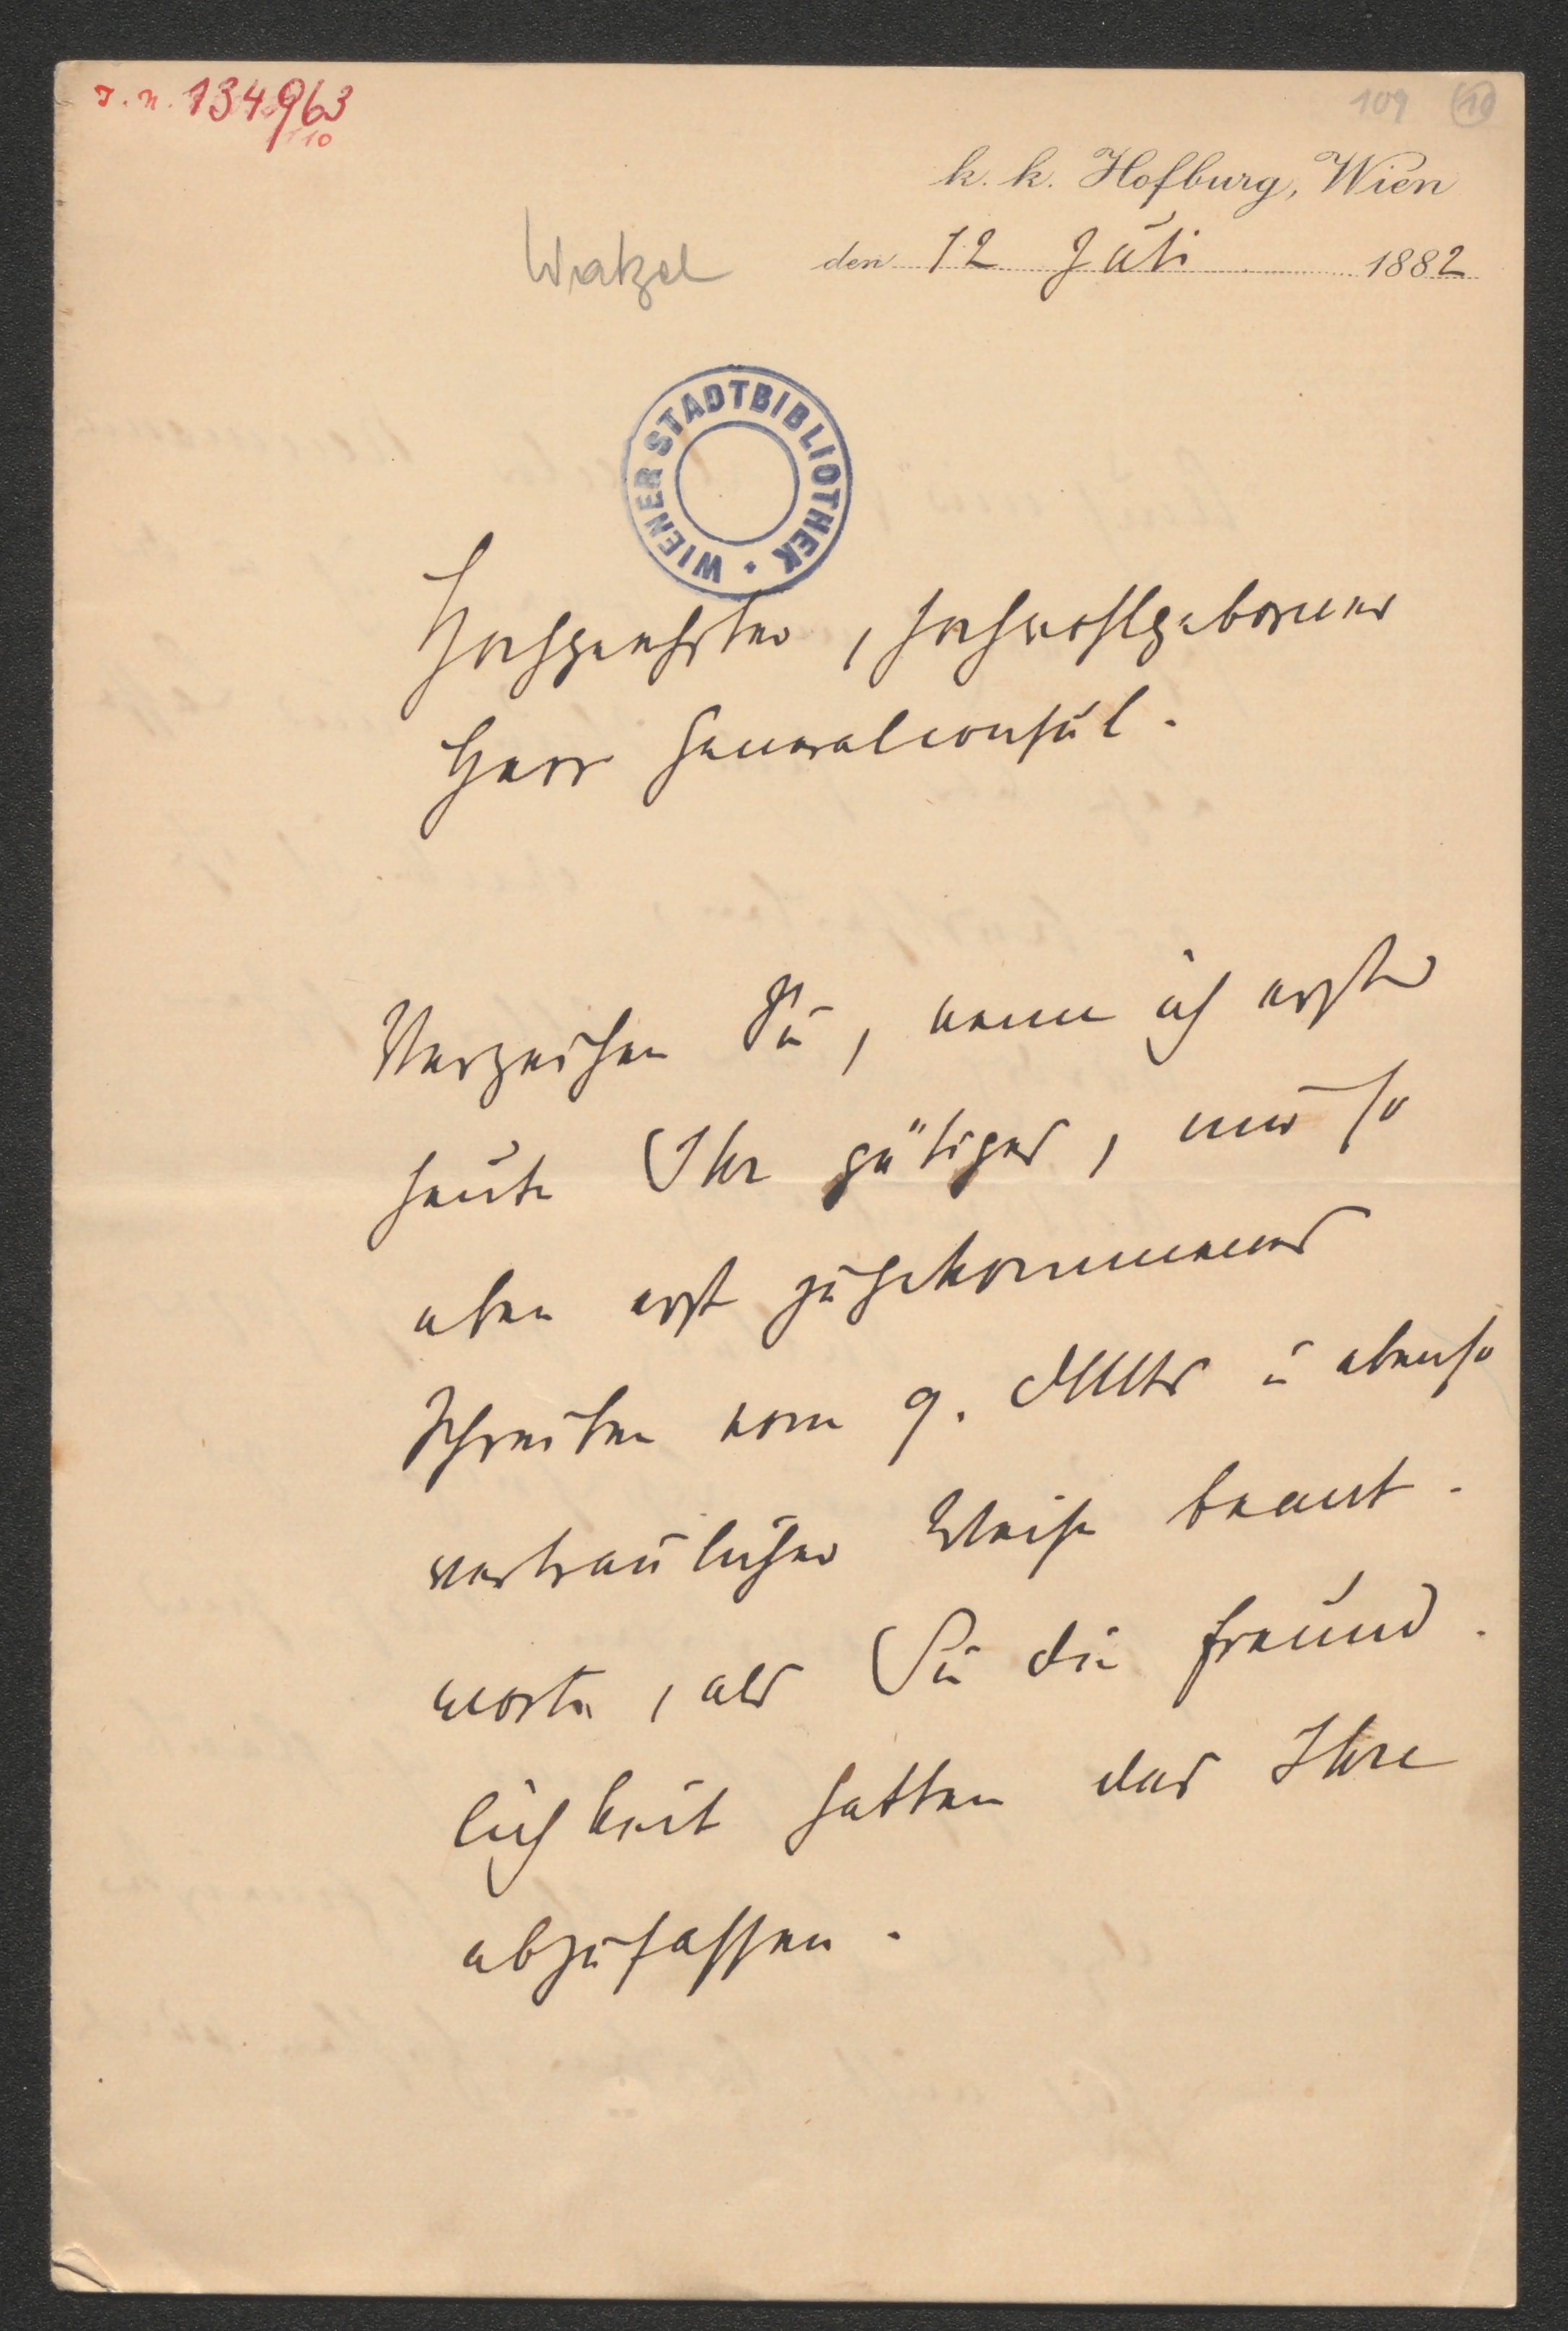 I. N. 134.963
110
109 10
k. k. Hofburg, Wien
den 12 Juli 1882
Watzel
WIENER STADTBIBLIOTHEK
Hochgeehrter, hochwohlgeborener
Herr Generalconsul.
Verzeihen Sie, wenn ich erst
heute Ihr gütiges, mir so
eben erst zugekommenes
Schreiben vom 9. dMts u ebenso
vertraulicher Weise beant-
worte, als Sie die Freund-
lichkeit hatten das Ihre
abzufassen.